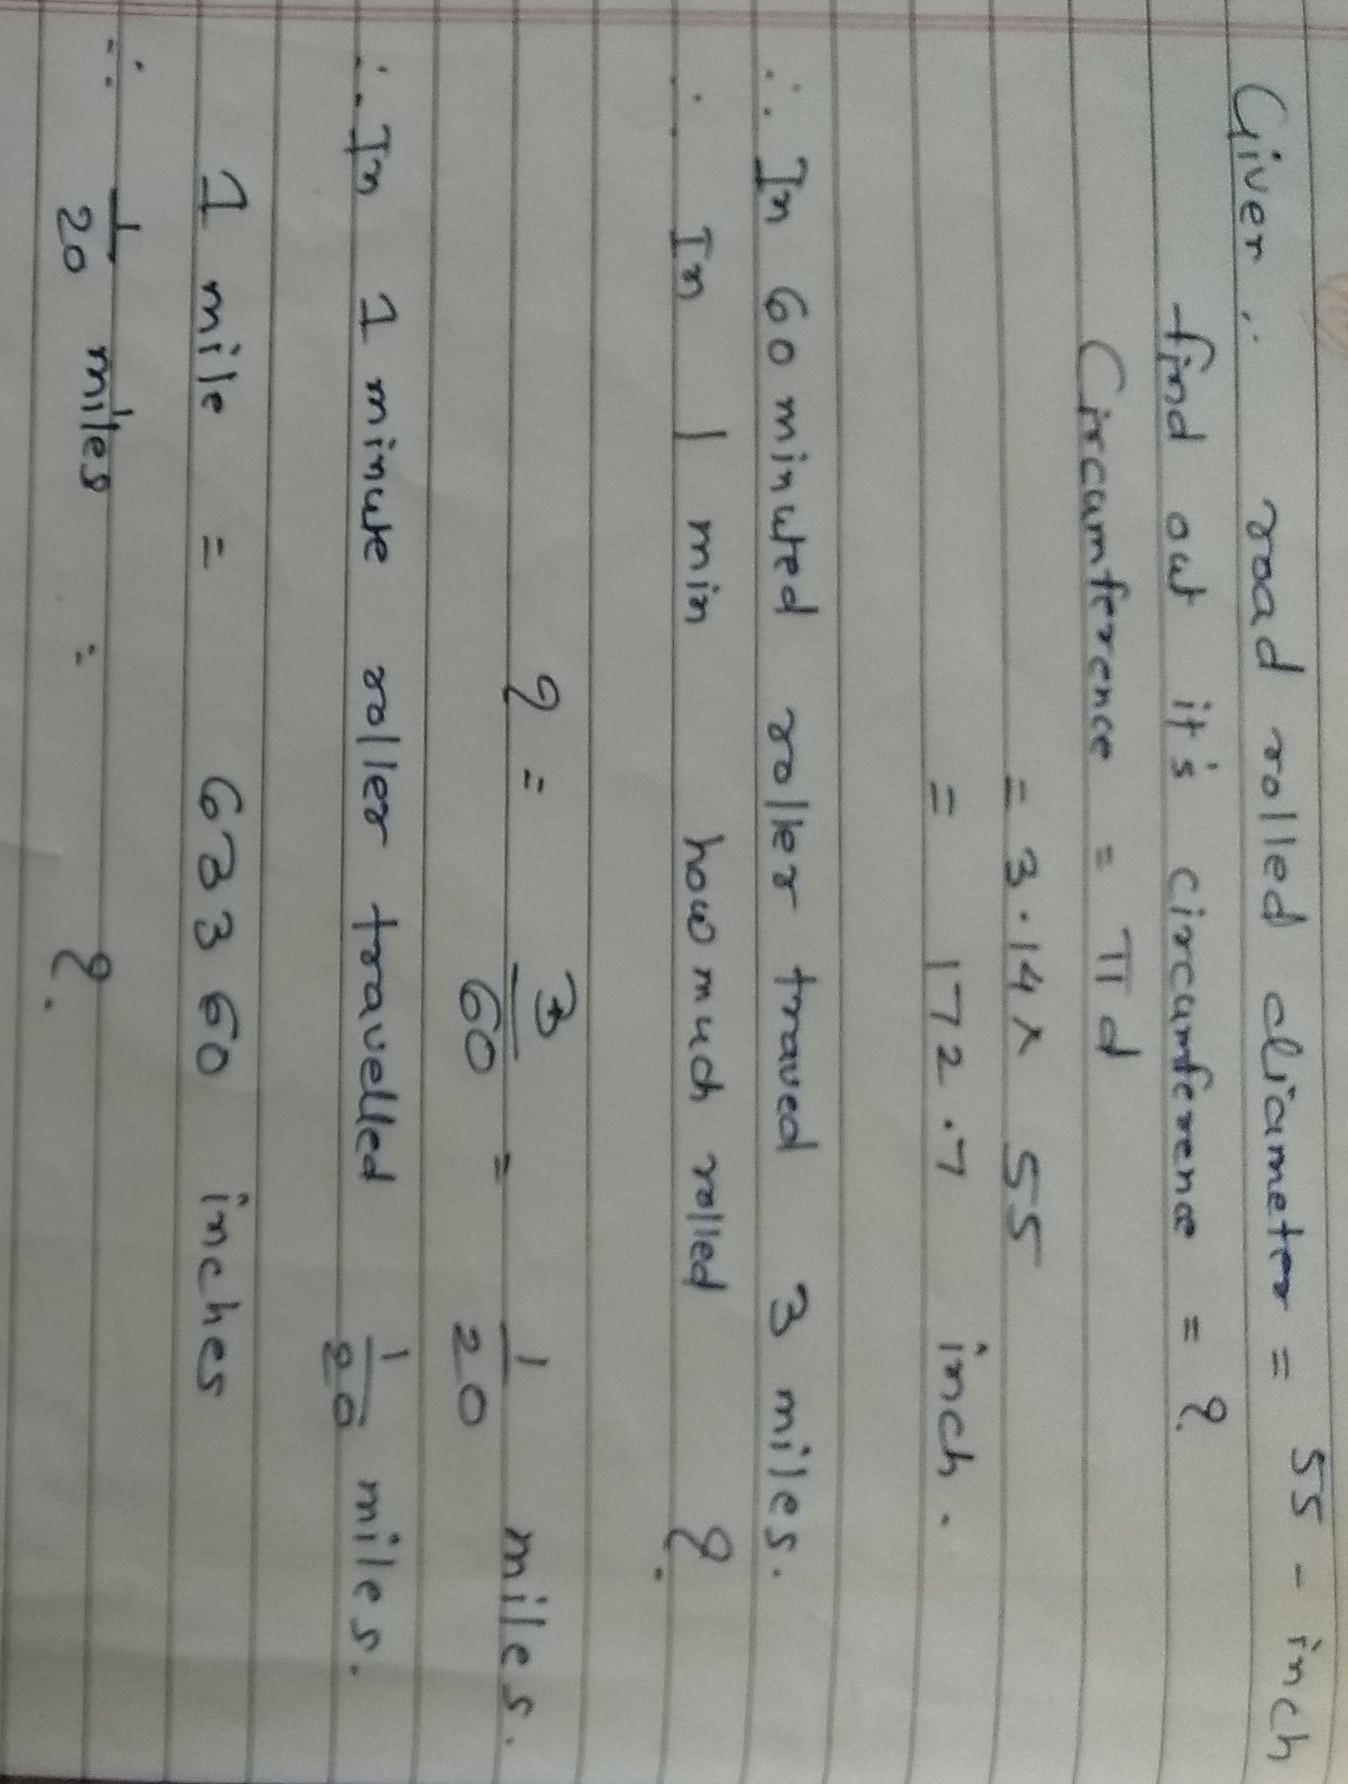 Given :- road rolled diameter = 55 - inch
find out it's circumference = ?
Circumference = π d
= 3.14 x 55
= 172.7 inch.
∴ In 60 minuted roller traved 3 miles.
∴ In 1 min how much rolled ?
? = 3/60 = 1/20 miles.
∴ In 1 minute roller travelled 1/20 miles.
1 mile = 63360 inches
∴ 1/20 miles = ?